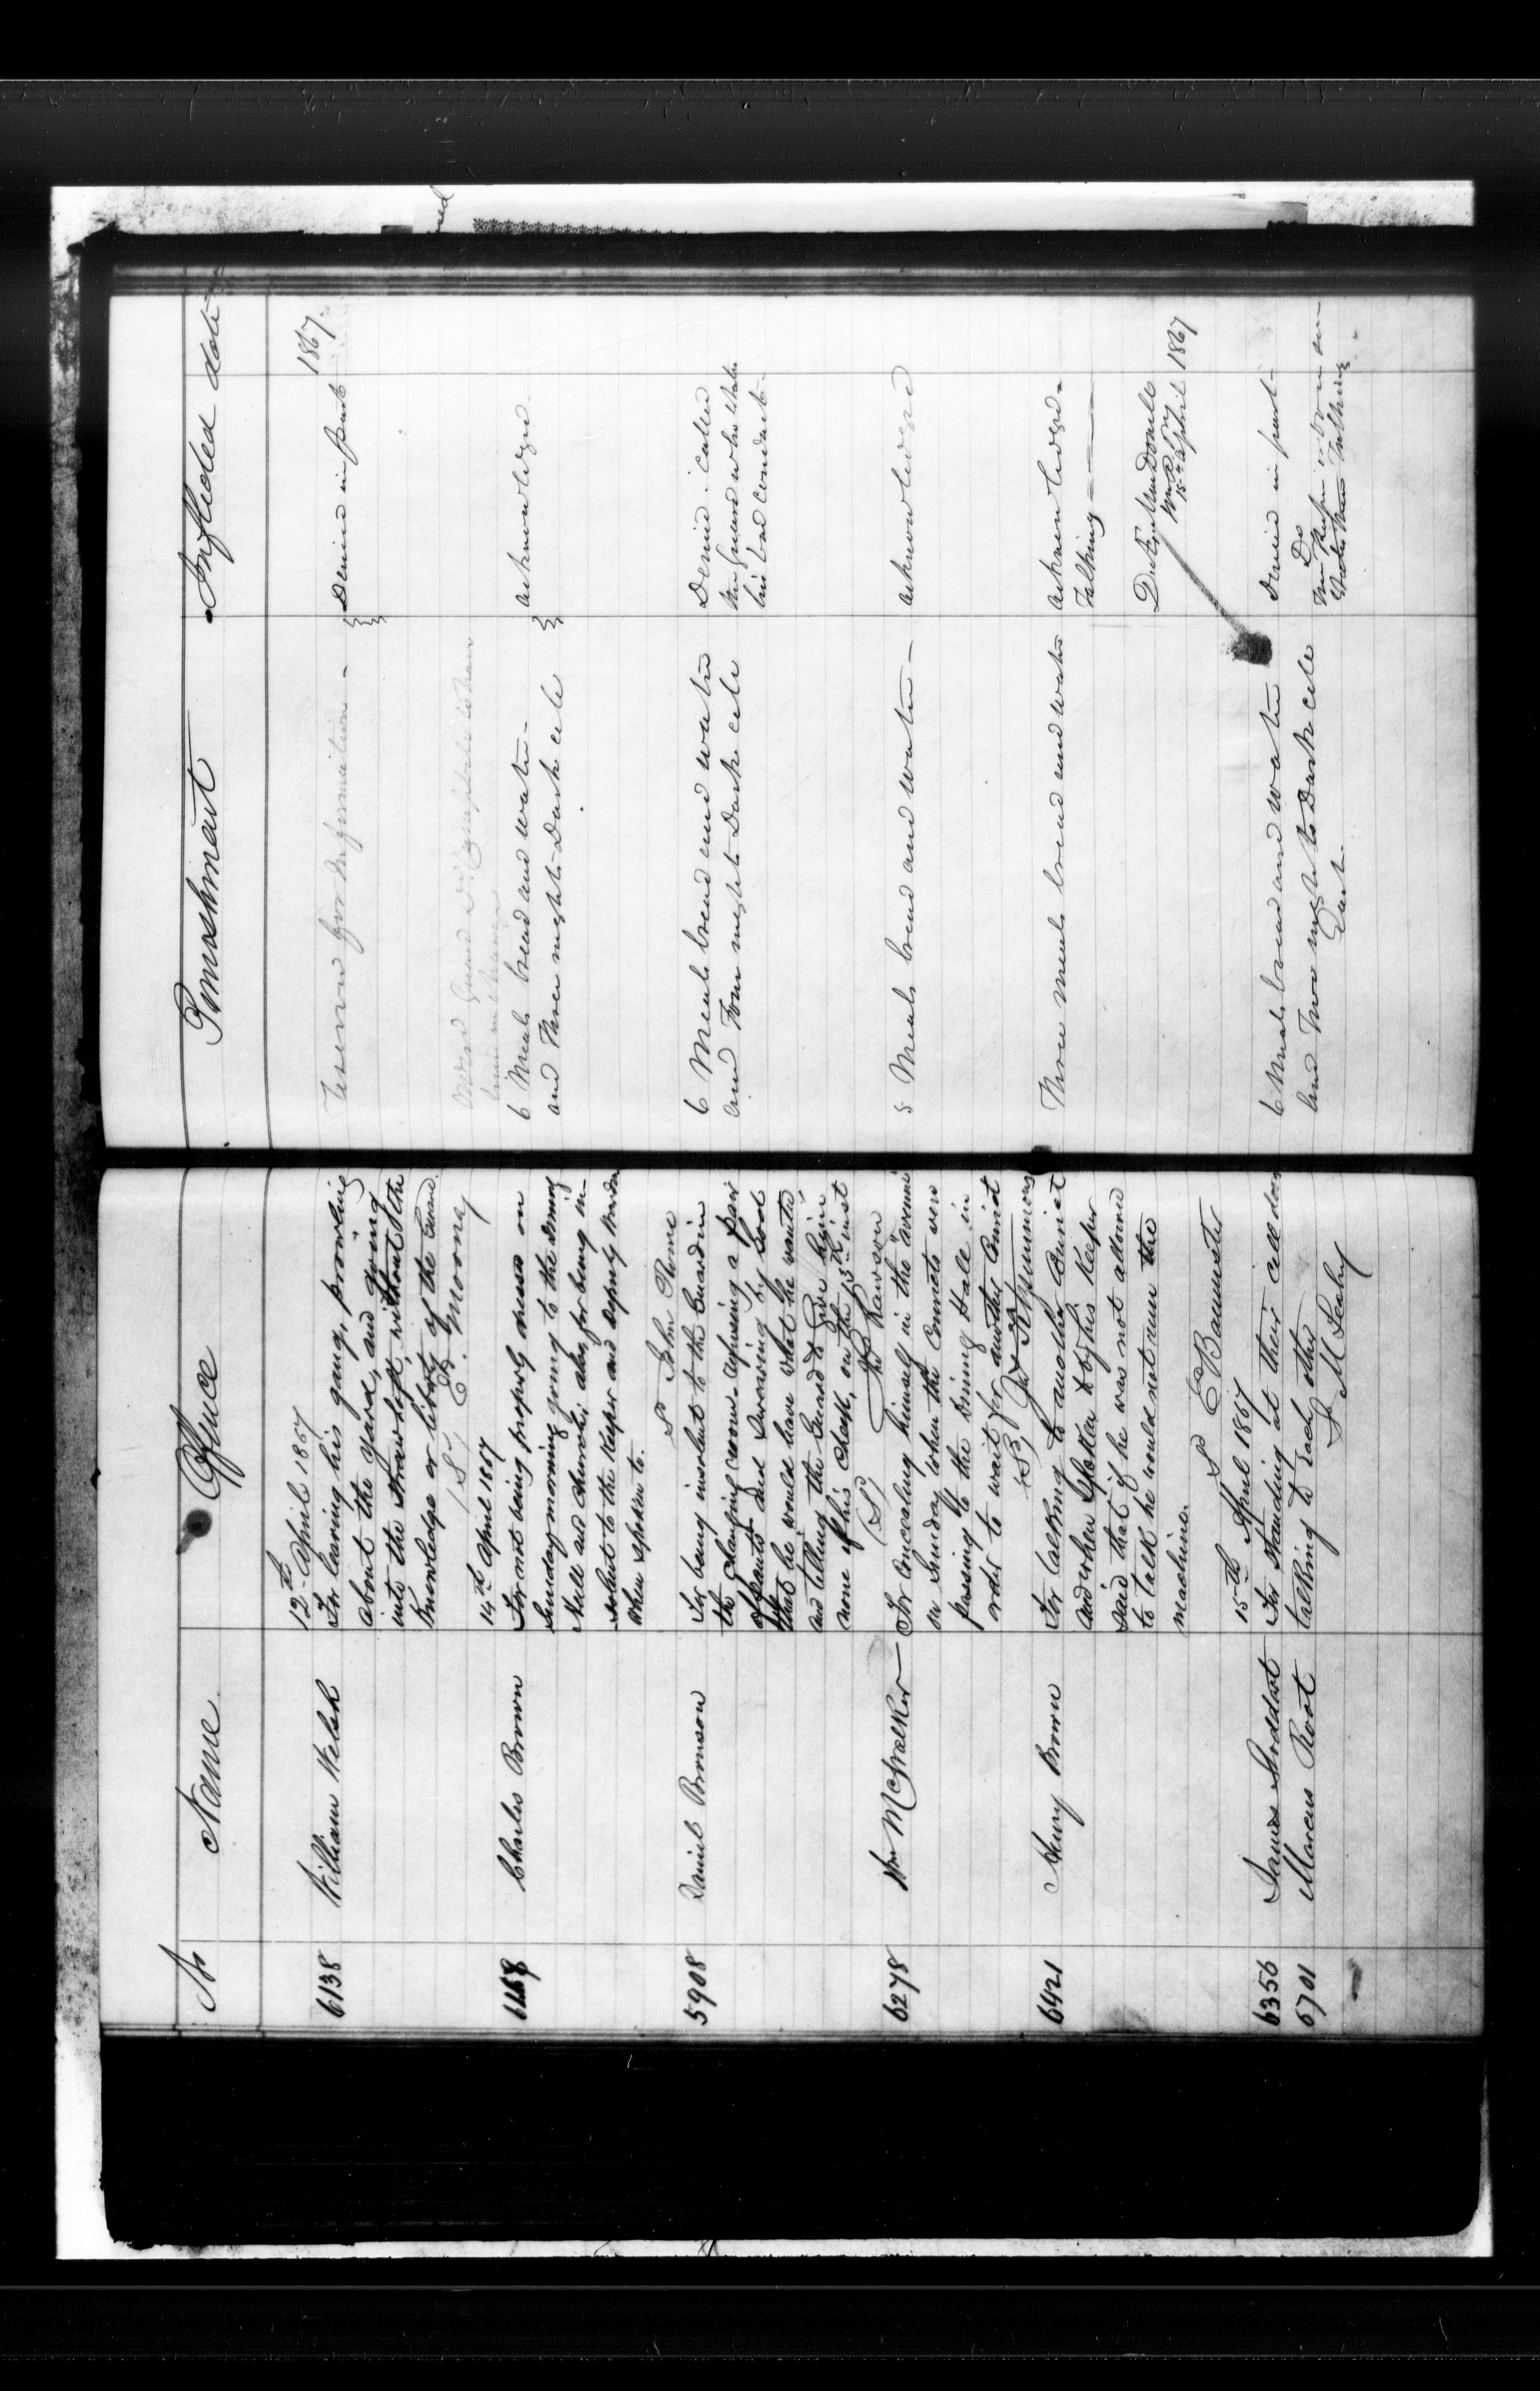 No Name Offence Punishment Inflicted date
12th April 1867 1867.
6138 William Welsh For leaving his gang, prowling
about the yard, and going
into the straw loft, without the
knowledge or liberty of the Guard.
(S) C. Mooney
for information - Denied in part
14th April 1867
Charles Brown For not being properly dressed on
Sunday morning going to the dining
Hall and Church; also, for being in-
solent to the Keeper and Deputy Warden
when spoken to.
S John
6 Meals bread and water -
and Three nights Dark cell
acknowledged -
5908 Daniel Bronson For being insolent to the Guard in
the changing room - refusing a pair
of pants and swearing by God
that he would have what he wanted
and telling the Guard to give him
none of his cheek, on the 13th inst
(S) Rawson
6 Meals bread and water
and Four nights Dark cell
Denied. Called
the guard who states
his bad conduct -
6278 Wm McWalker For concealing himself in the avenue
on Sunday when the Convicts were
passing to the Dining Hall in
order to wait for another Convict
(S)
5 Meals bread and water -
acknowledged
6421 Henry Brown For talking to another Convict
and when spoken to by his Keeper
said that if he was not allowed
to talk he would not run the
machine.
S Bannister
Three meals bread and water
acknowledged -
Talking -
15th April 1867
15th April 1867
6356 James Stoddart For standing at their cell door
6701 Marcus Root talking to each other
M Leahy
6 Meals bread and water
and Two nights Dark cell
Denied in part -
Do
talking